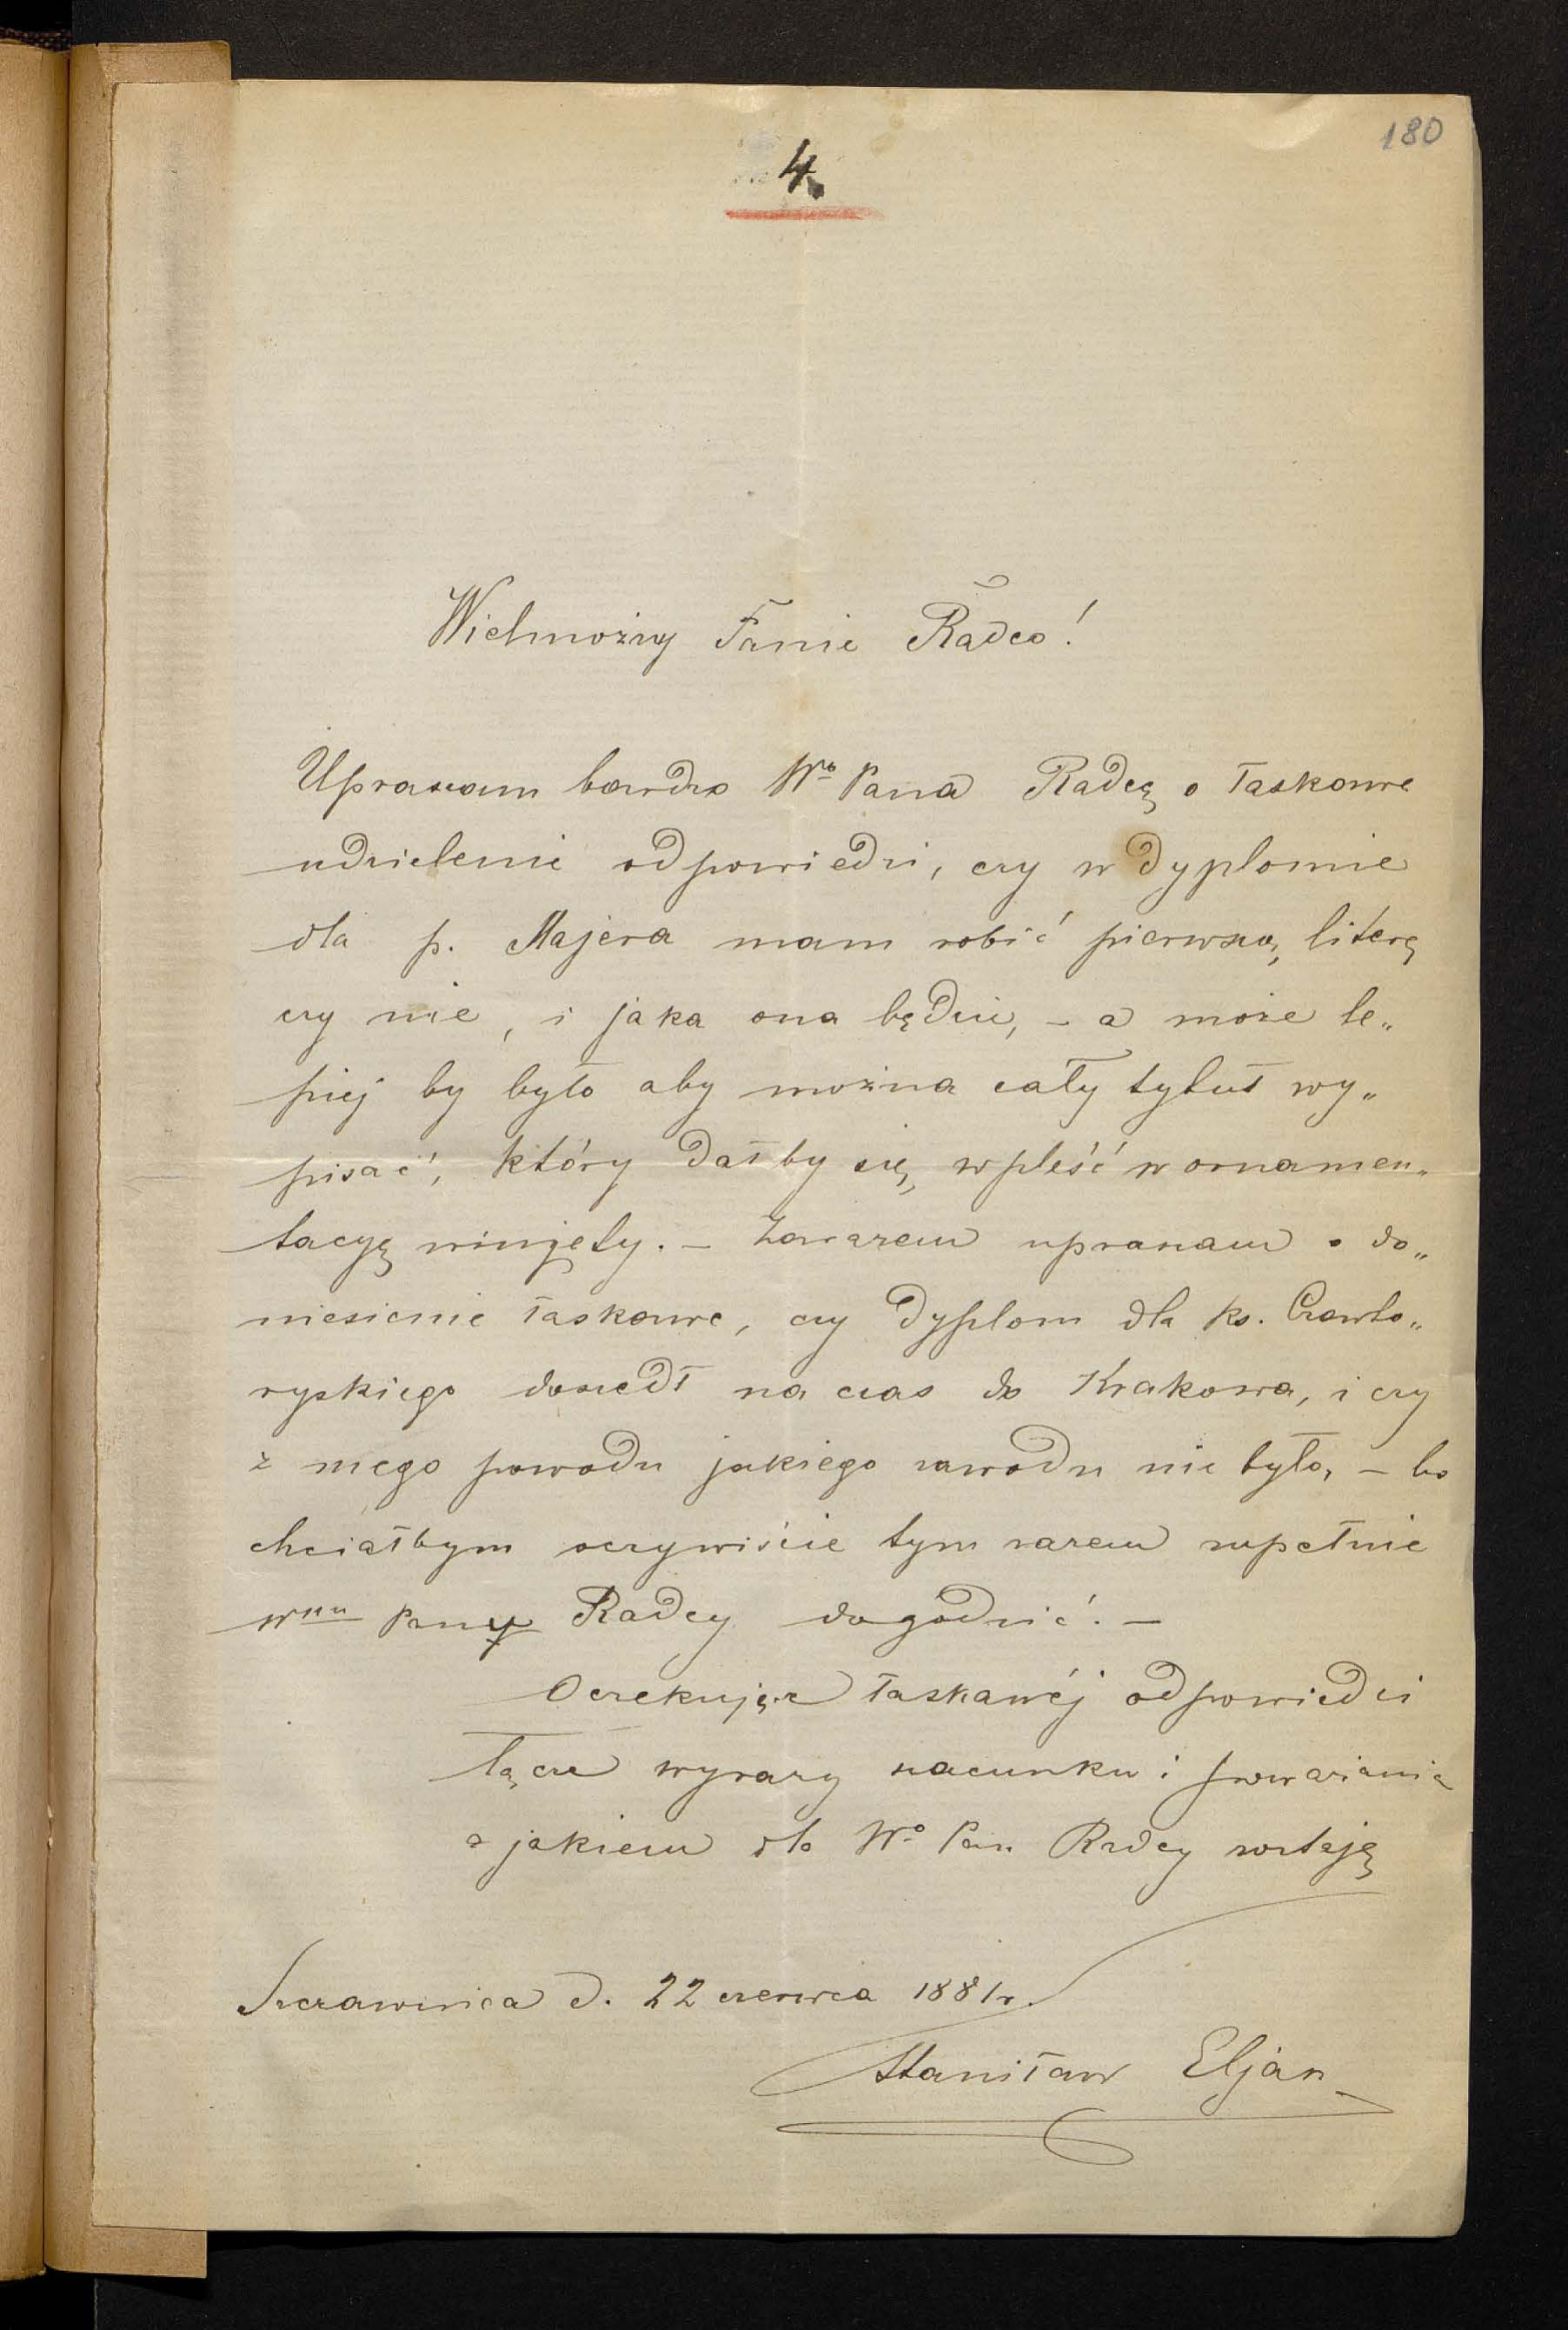 180
4.
Wielmożny Panie Radco!
Upraszam bardzo Wgo Pana Radcę o łaskawe
udzielenie odpowiedzi, czy w dyplomie
dla p. Majera mam robić pierwszą literę
czy nie, i jaka ona będzie, – a może le„
piej by było aby można cały tytuł wy„
pisać, który dałby się wpleść w ornamen„
tacyę winjety. – Zarazem upraszam o do„
niesienie łaskawe, czy dyplom dla ks. Czarto„
ryskiego doszedł na czas do Krakowa, i czy
z mego powodu jakiego zawodu nie było, – bo
chciałbym oczywiście tym razem zupełnie
Wmu Panu Radcy dogodzić. –
Oczekując łaskawéj odpowiedzi
łączę wyrazy szacunku i poważania
z jakiem dla Wo Pan Radcy zostaję
Szczawnica d. 22 czerwca 1881 r.
Stanisław Eljasz